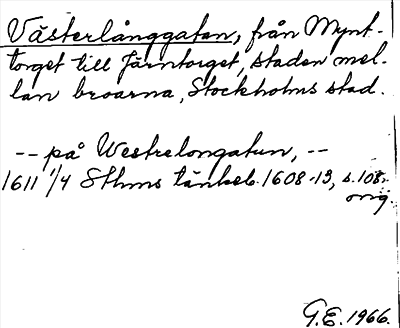 Västerlånggatan, från Mynt-
torget till Järntorget, staden mel-
lan broarna, Stockholms stad.
-- på Westrelongatun, --
1611 1/4 Sthms tänkeb. 1608-13, s. 108,
orig.
G.E. 1966.